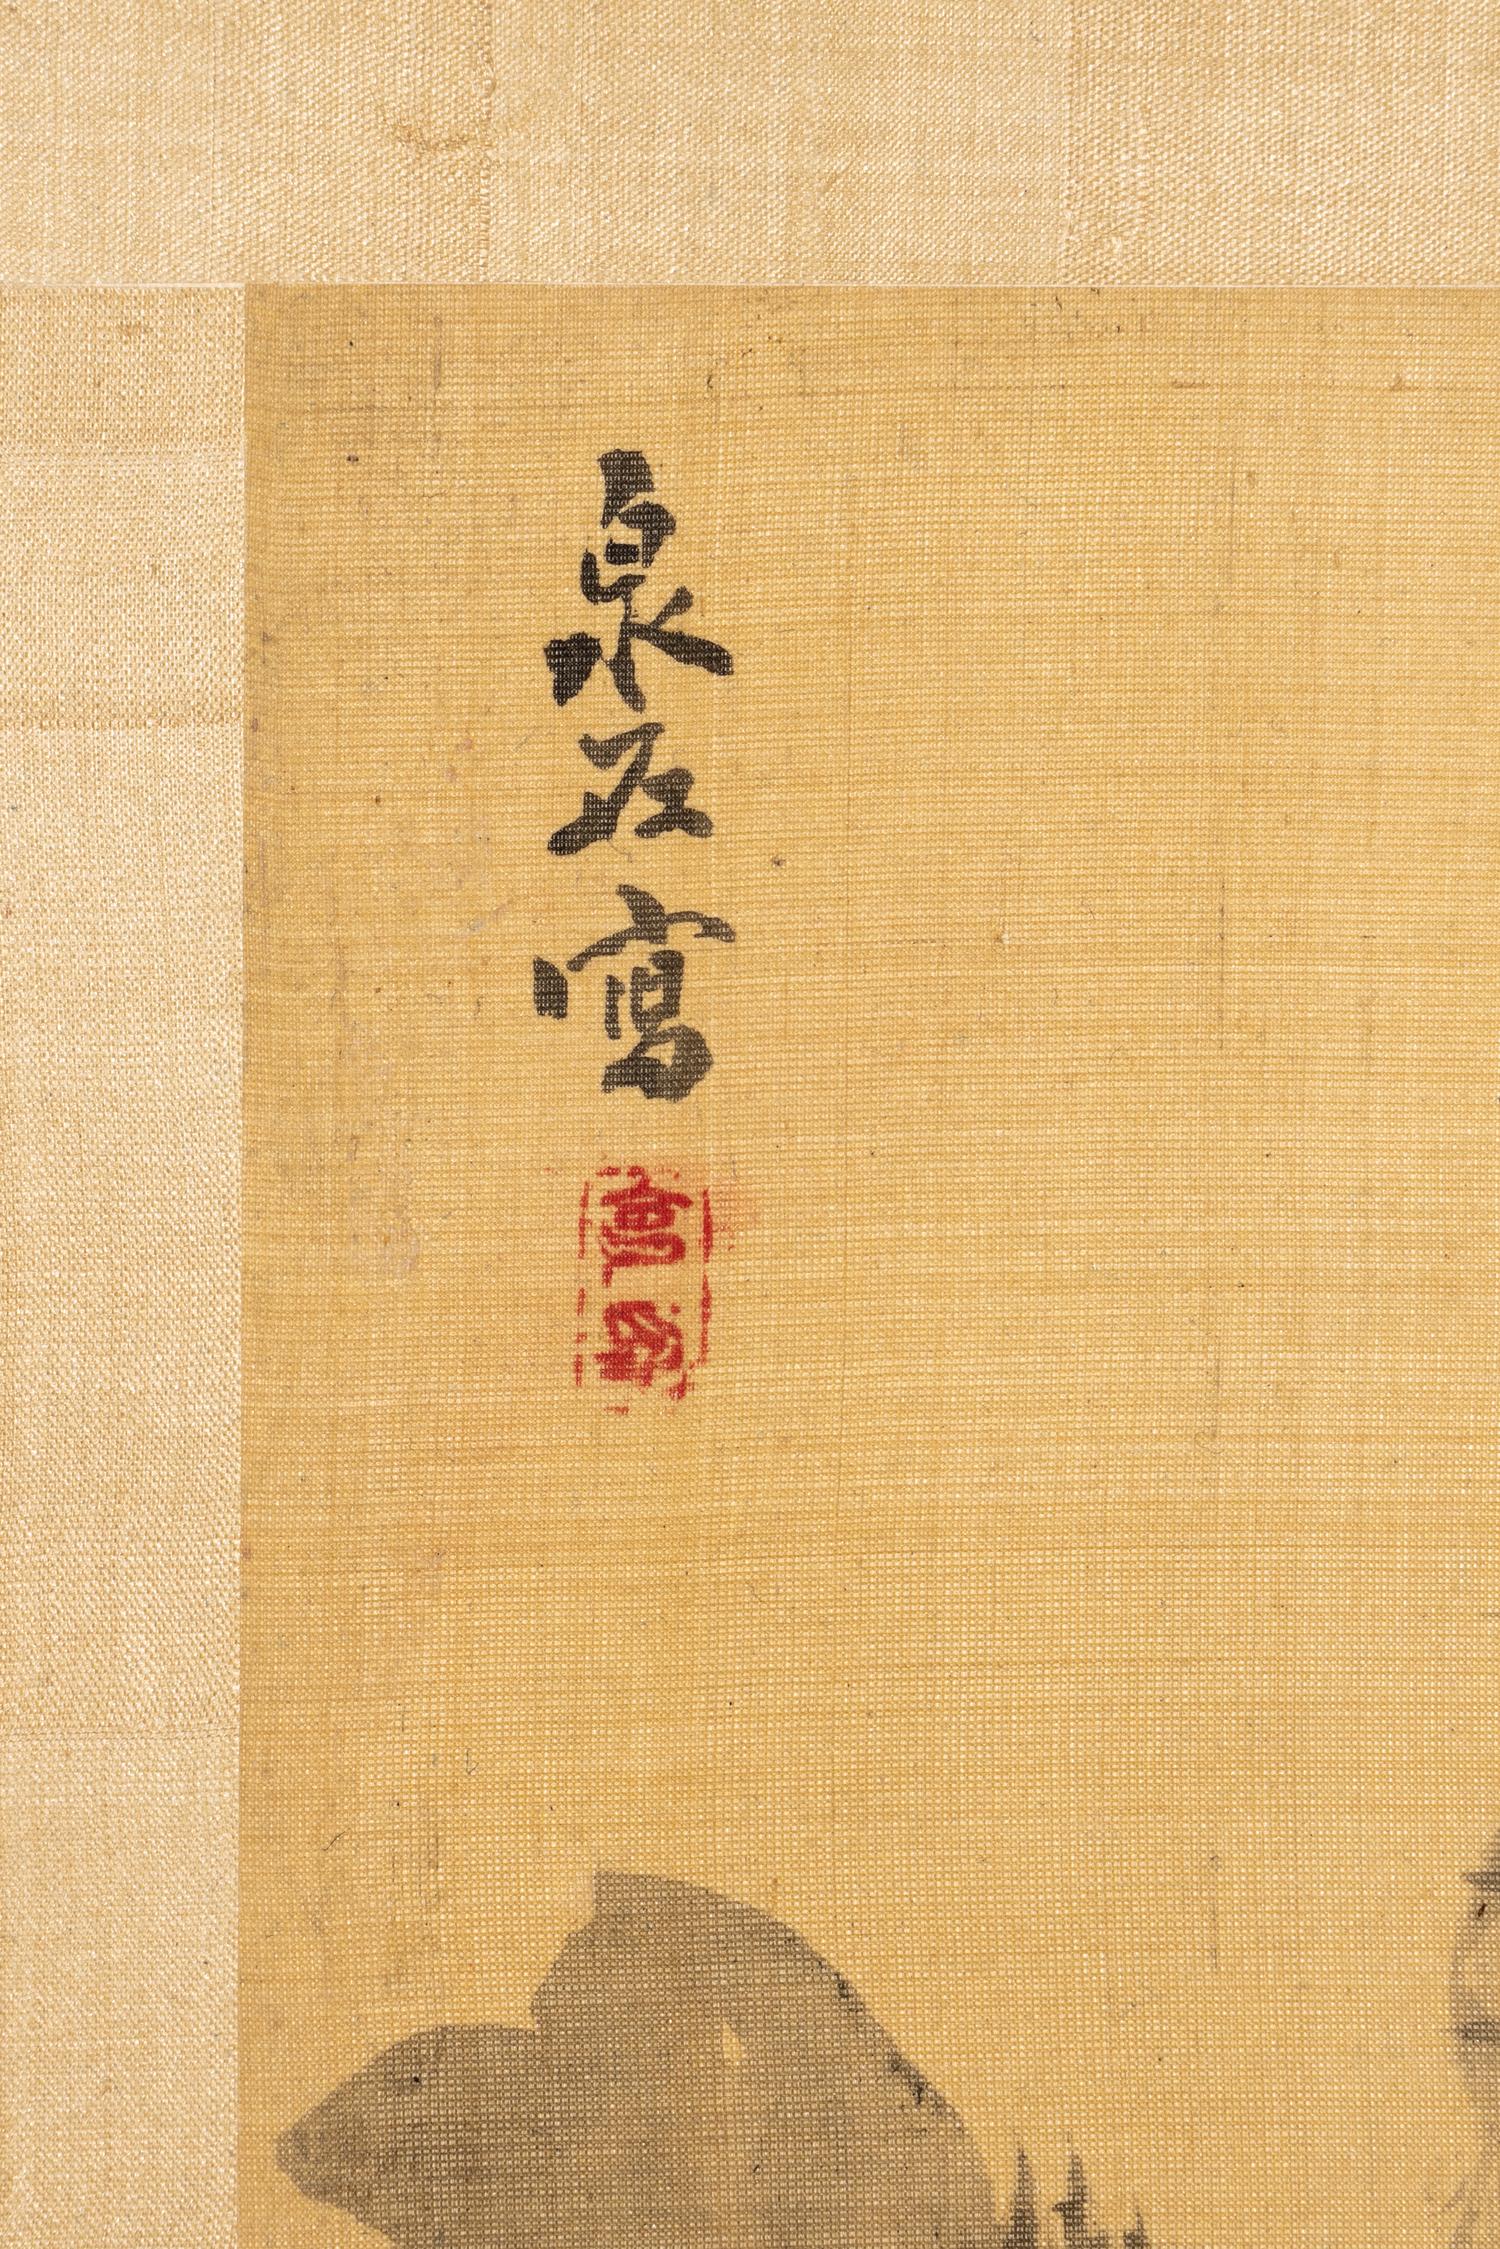 泉石寫